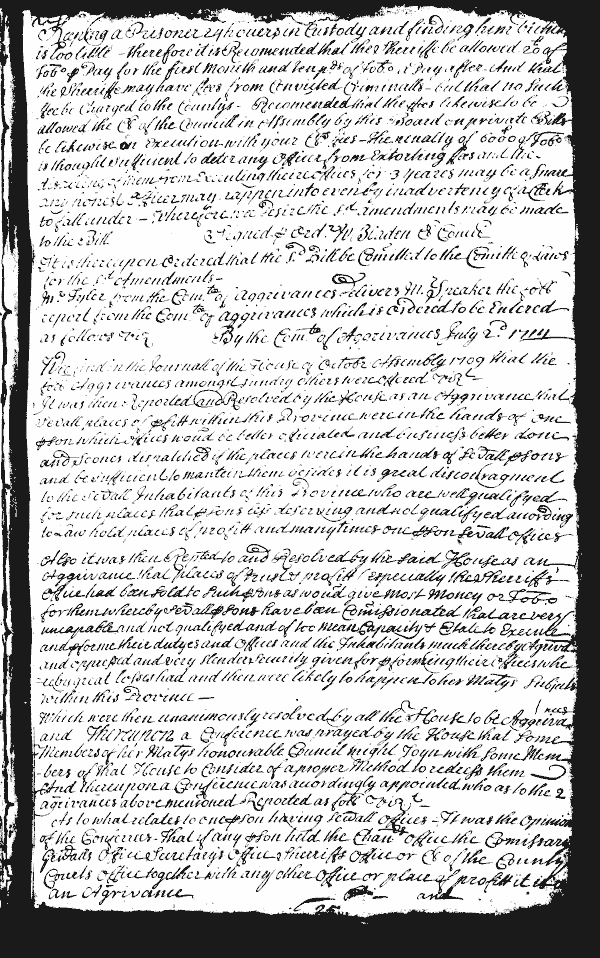 Having a Prisoner 24 houers in Custody and finding him Victuals
is too little - therefore it is Recomended that the Sherriffe be allowed 20 of
Tobo p Day for the first Month and ten pds of Tobo a Day after. And that
the Sherriffe may have fees from Convicted Criminalls - but that no Such
fee be Charged to the Countys - Recomended that the fees likewise to be
allowed the Cl of the Councill in Assembly by this Board on private Bills
be likewise on Execution with your Clks fees - The penalty of 6000 of Tobo
is thought sufficient to deter any Officer from Extorting fees and the
disabling of them from Executing their offices for 3 years may be a Snare
any honest Officer may happen into even by inadvertency of a Clerk
to fall under - Wherefore we desire the sd amendments may be made
to the Bill Signed p Ord. W. Bladen Cl Concil
It is thereupon ordered that the sd Bill be Comitted to the Comitte of Laws
for the sd Amendments -
Mr Tyler from the Comte of Aggrivances Delivers Mr Speaker the foll
report from the Comte of Aggrivances which is ordered to be Entered
as follows vizt By the Comte of Aggrivances July 2d 1711
We find in the Journall of the House of October Assembly 1709 that the
foll Aggrivances amongst sundry others were offered vizt -
It was then Reported and Resolved by the House as an Aggrivance that
Severall places of pfitt within this Province were in the hands of one
pson which offices would be better officiated and business better done
and sooner dispatched if the places were in the hands of Severall psons
and be sufficient to mantain them besides it is great discouragment
to the Severall Inhabitants of this Province who are well qualifyed
for such places that psons less deserving and not qualifyed according
to Law hold places of profitt and many times one pson Severall offices
Also it was then Repted to and Resolved by the said House as an
Aggrivance that places of trust & profitt (especially the Sherriff's
Office had been sold to Such psons as would give most Money or Tobo
for them whereby Severall psons have been Comissionated that are very
uncapable and not qualifyed and of too mean Capacity & Estate to Execute
and pforme their dutyes and Offices and the Inhabitants much thereby Agrived
and oppressed and very slender security given for pforming their offices whe
-reby great losses had and then were likely to happen to her Matys Subjects
within this Province -
Which were then unanimously resolved by all the House to be Aggrivances
and Thereupon a Conference was prayed by the House that Some
Members of her Matys honourable Council might Joyn with Some Mem
-bers of that House to Consider of a proper Method to redress them
And thereupon a Conference was accordingly appointed who as to the 2
agrivances above mentioned Reported as foll vizt -
As to what relates to one pson having Severall offices - It was the Opinion
of the Conferrees - That if any pson held the Chan office the Comissary
Genalls Office Secretarys Office Sherriffs Office or Cl of the County
Courts office together with any other Office or place of profitt it is
an Agrivance and